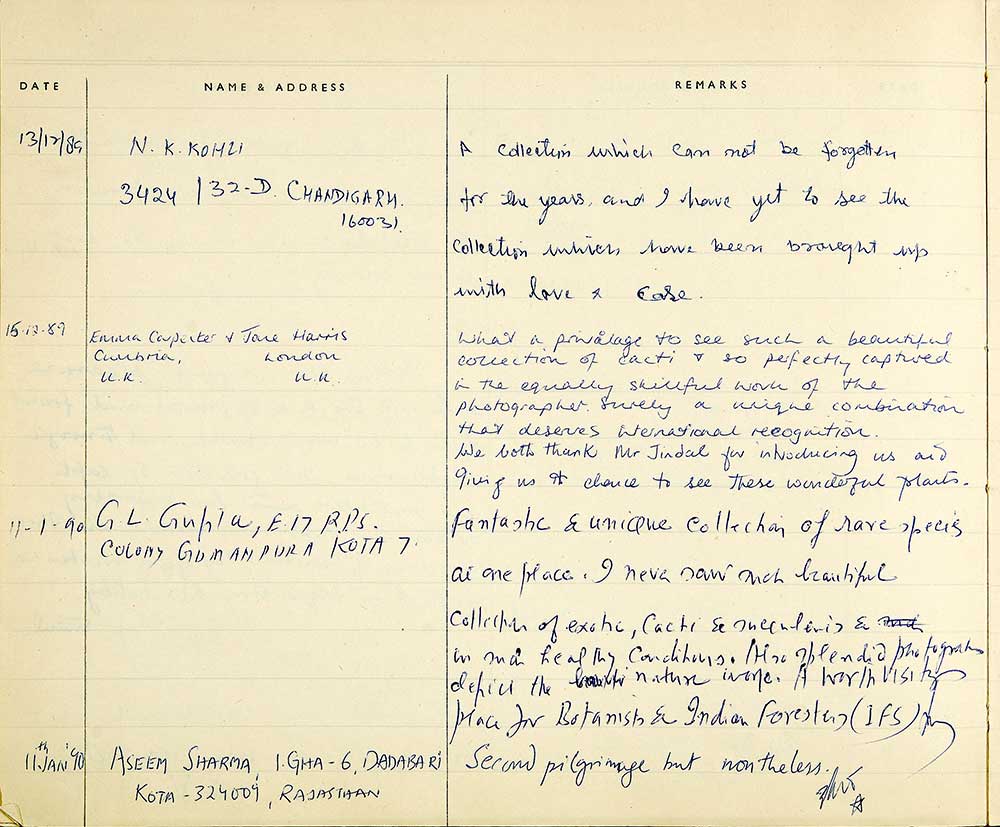 DATE NAME & ADDRESS REMARKS
13/12/89 N. K. KOHLI A collection which can not be forgotten
3424 / 32-D. CHANDIGARH. for the years, and I have yet to see the
160031.
collection which have been brought up
with love & care.
15-12-89 Emma Carpenter & Jane Harris What a privalage to see such a beautiful
Cumbria, London collection of cacti & so perfectly captured
U.K. U.K. in the equally skillful work of the
photographer. Surely a unique combination
that deserves international recognition.
We both thank Mr Jindal for introducing us and
giving us chance to see these wonderful plants.
11-1-90 G L Gupta, E.17 R.P.S. Fantastic & unique collection of rare species
COLONY GUMANPURA KOTA 7.
at one place. I never saw such beautiful
collection of exotic, Cacti & succulents &
in such healthy conditions. Also splendid photographs
depict the nature worke. A worth visiting
place for Botanists & Indian Foresters (IFS)
11th JAN '90 ASEEM SHARMA, 1-GHA-6, DADABARI Second pilgrimage but nontheless.
KOTA-324009, RAJASTHAN